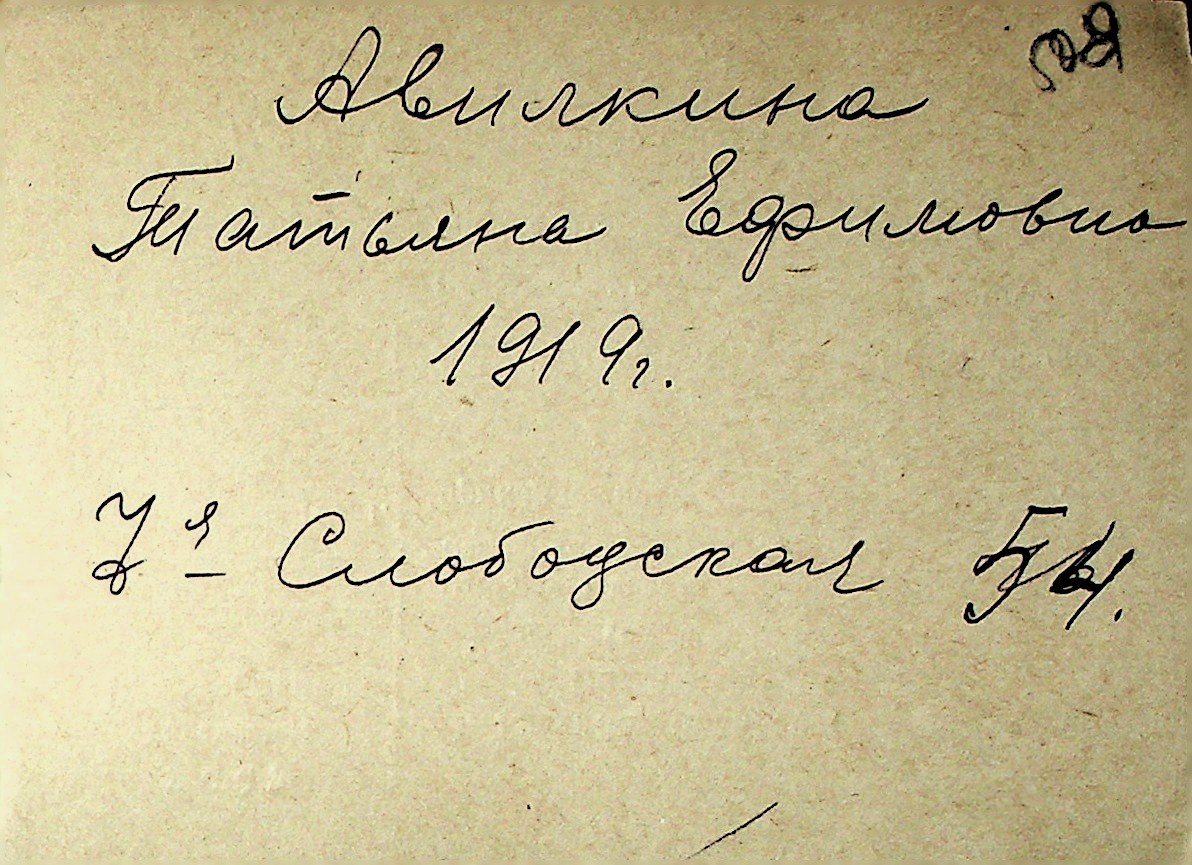 Авилкина
Татьяна Ефимовна
1919г.
7я Слободская